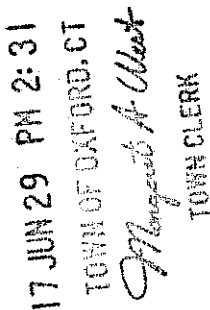 17 JUN 29 PM 2:31
TOWN OF OXFORD, CT
Margaret A. West
TOWN CLERK